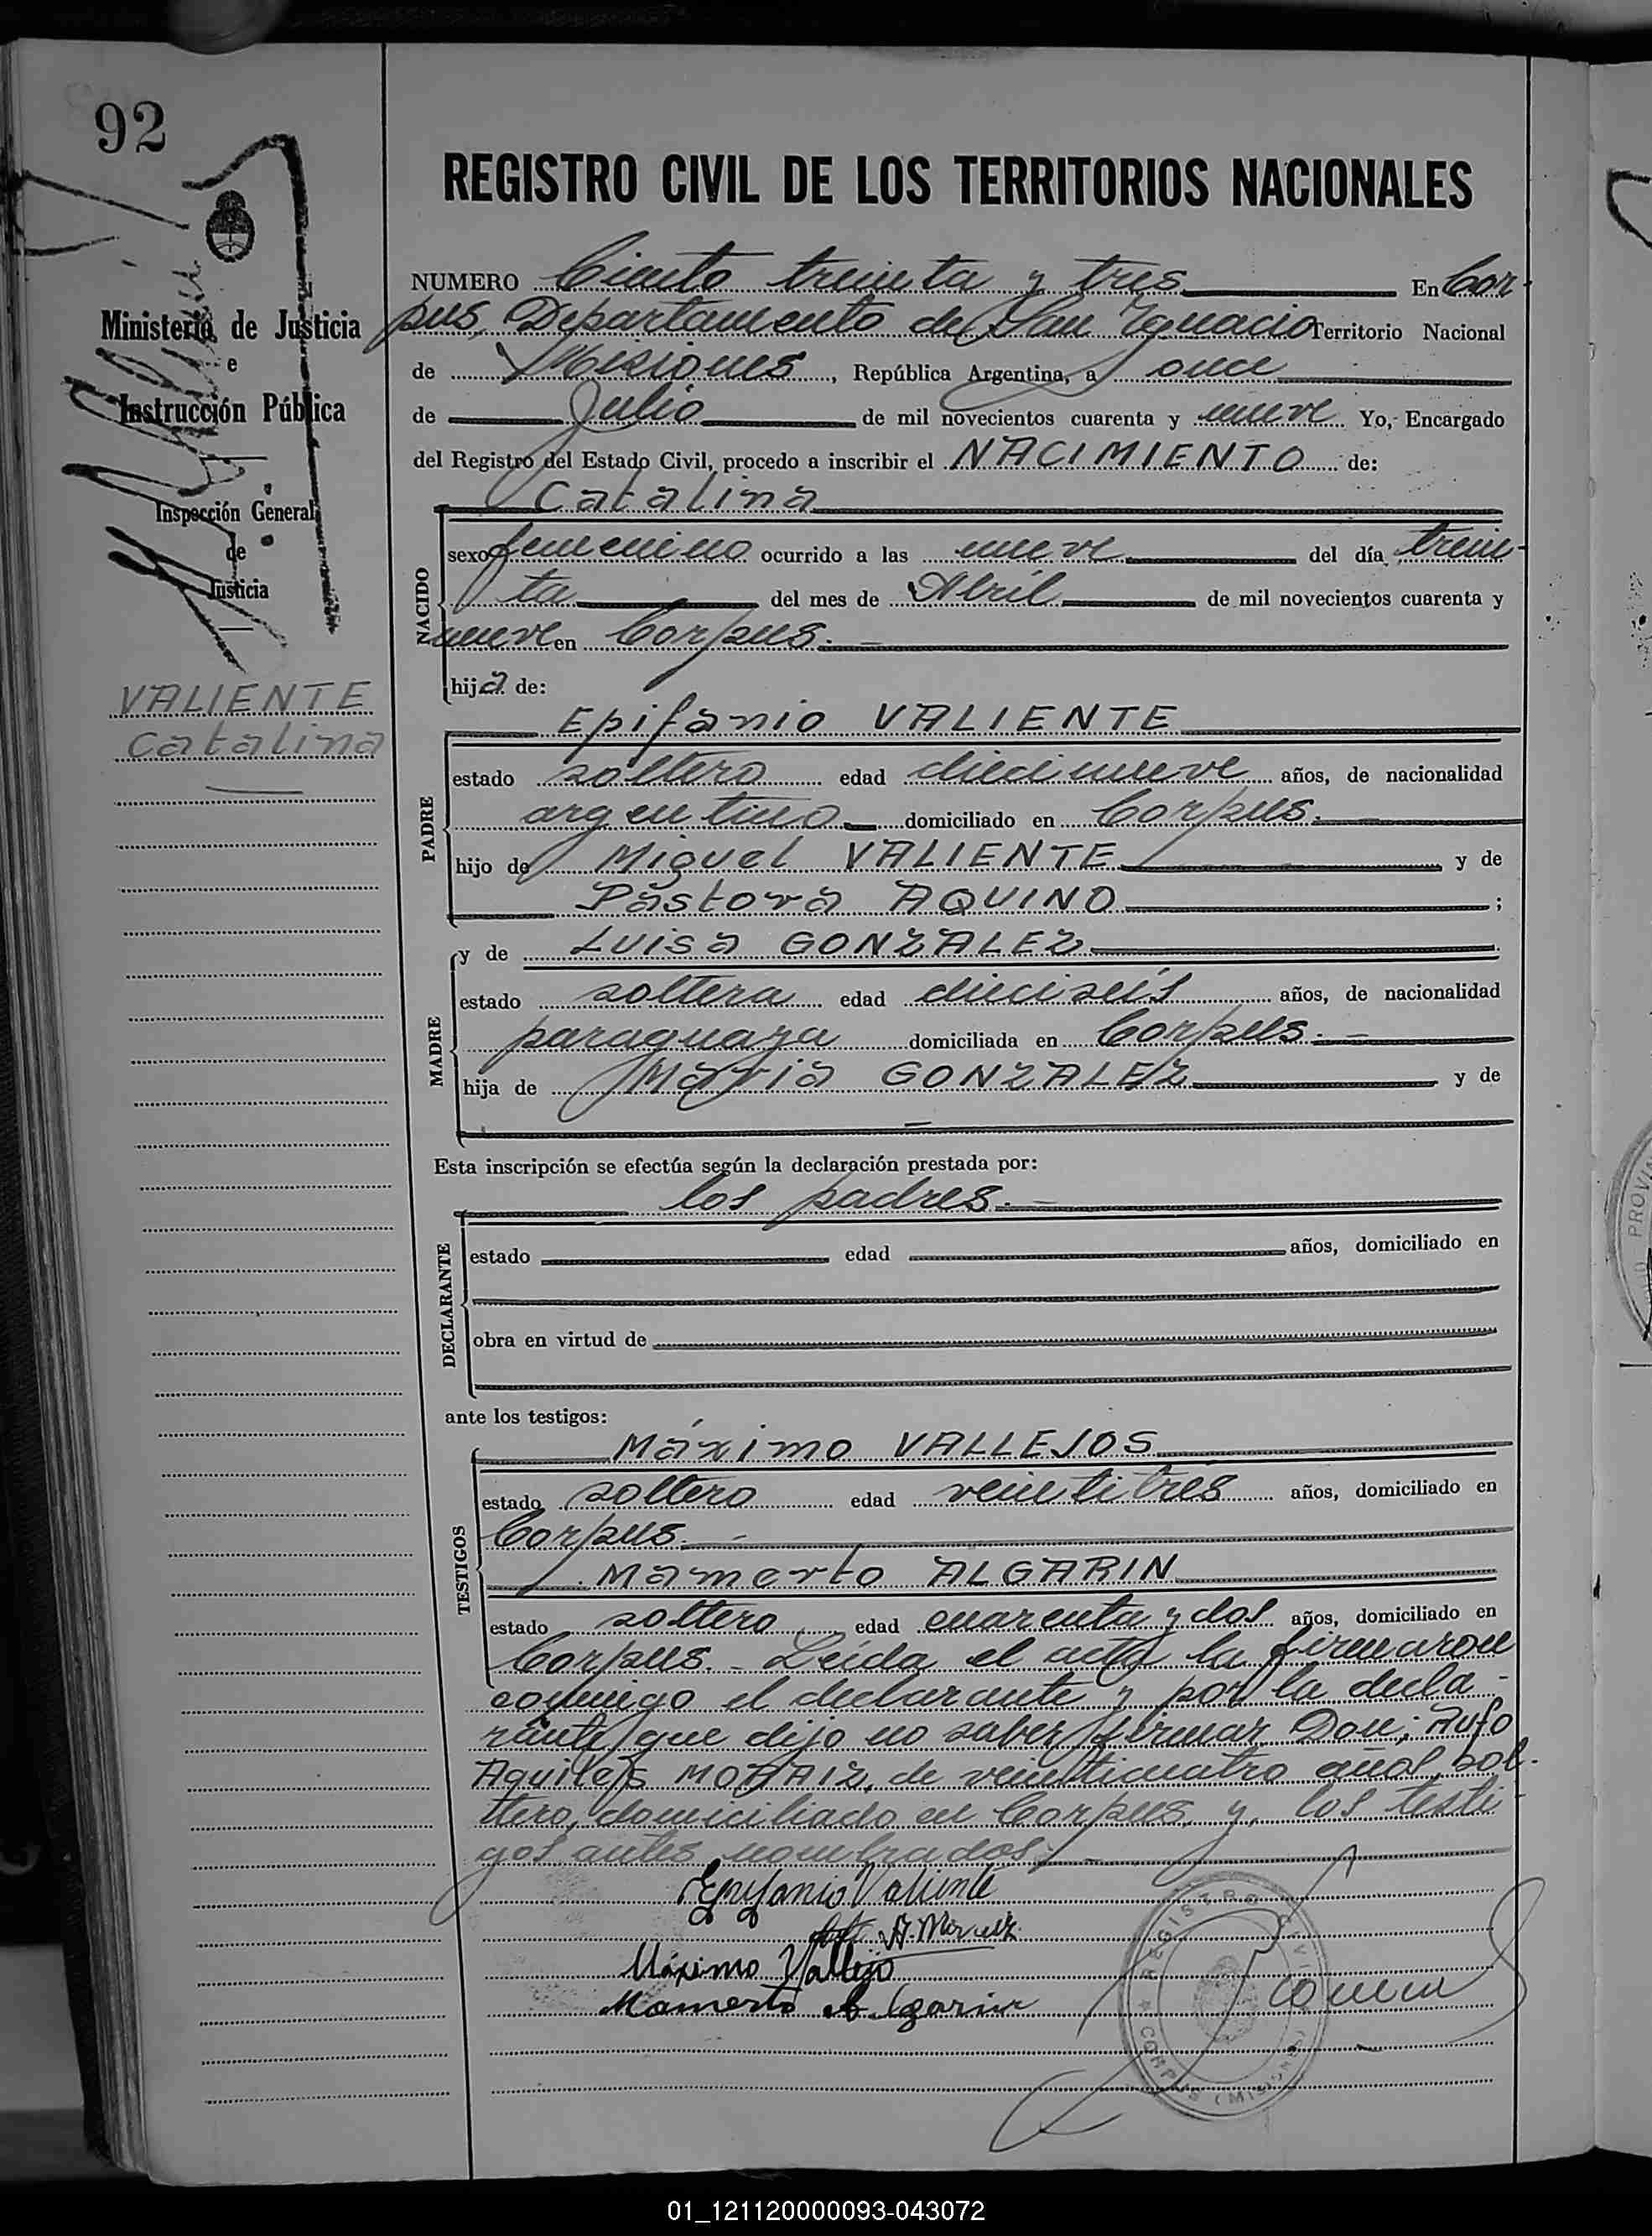 92
REGISTRO CIVIL DE LOS TERRITORIOS NACIONALES
Ministerio de Justicia
e
Instrucción Pública
Inspección General
de
Justicia
VALIENTE
Catalina
NUMERO Ciento treinta y tres En Cor-
pus, Departamento de San Ignacio Territorio Nacional
de Misiones, República Argentina, a once
de Julio de mil novecientos cuarenta y nueve Yo, Encargado
del Registro del Estado Civil, procedo a inscribir el NACIMIENTO de:
Catalina
NACIDO
sexo femenino ocurrido a las nueve del día trein-
ta del mes de Abril de mil novecientos cuarenta y
nueve en Corpus.
hija de:
Epifanio VALIENTE
PADRE
estado soltero edad diecinueve años, de nacionalidad
argentino domiciliado en Corpus.
hijo de Miguel VALIENTE y de
Pastora AQUINO ;
y de Luisa GONZALEZ
MADRE
estado soltera edad dieciseís años, de nacionalidad
paraguaya domiciliada en Corpus.
hija de María GONZALEZ y de
Esta inscripción se efectúa según la declaración prestada por:
los padres.
DECLARANTE
estado edad años, domiciliado en
obra en virtud de
ante los testigos:
Máximo VALLEJOS
TESTIGOS
estado soltero edad veintitrés años, domiciliado en
Corpus.
Mamerto ALGARIN
estado soltero edad cuarenta y dos años, domiciliado en
Corpus. Leída el acta la firmaron
conmigo el declarante y por la decla-
rante que dijo no saber firmar Don: Rufo
Aquiles de veinticuatro años, sol-
tero, domiciliado en Corpus, y los testi-
gos antes nombrados.
Epifanio Valiente
Máximo Vallejo
Mamerto Algarin
REGISTRO CIVIL
CORPUS (MISIONES)
01_121120000093-043072